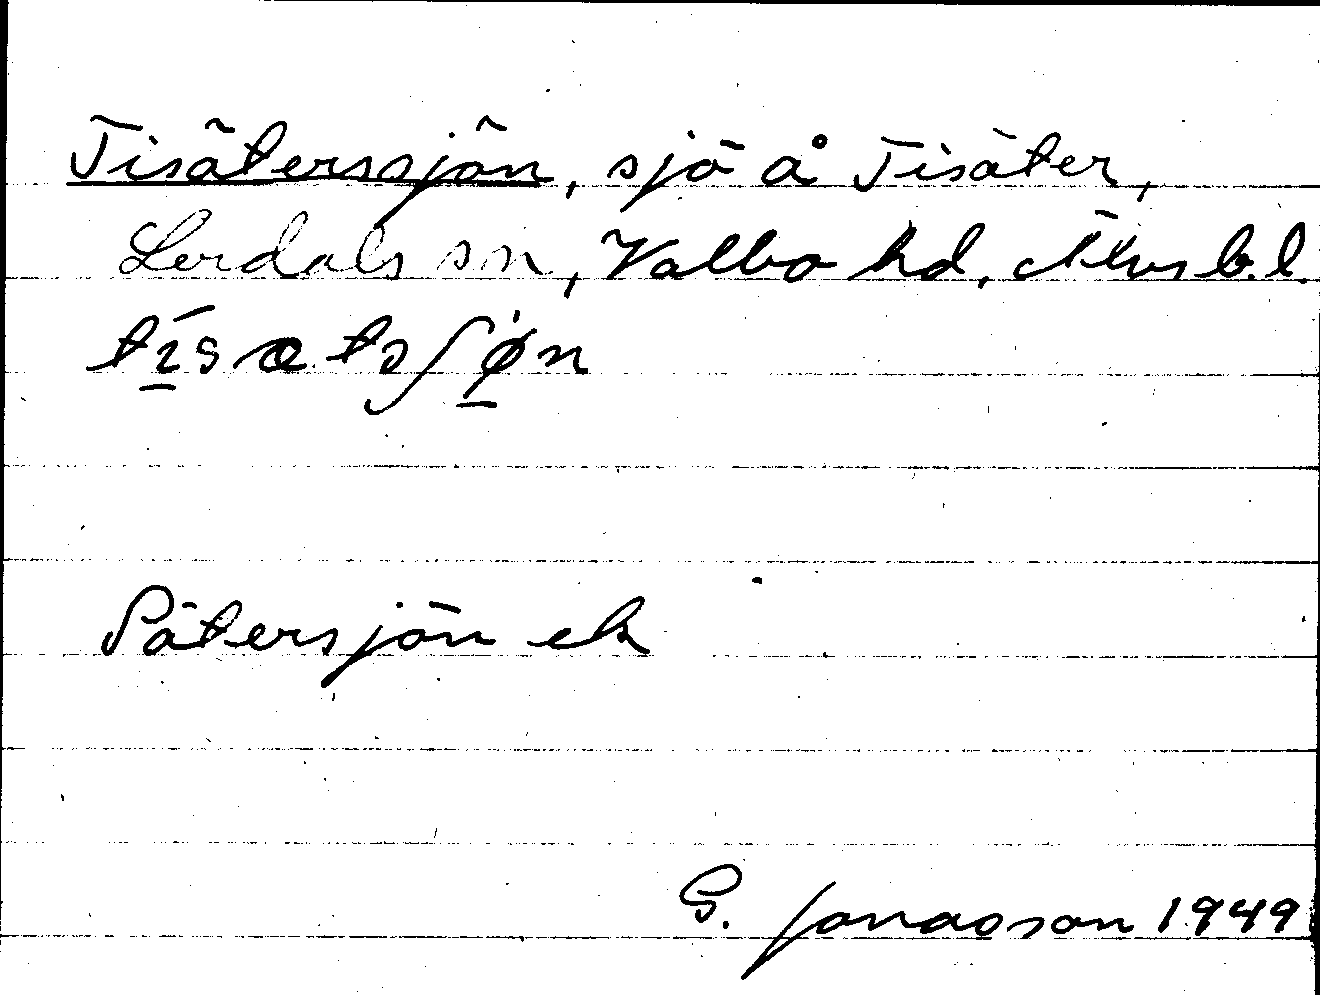 Tisätersjön, sjö å Tisäter,
Lerdals sn, Valbo hd, Älvsb.l.
tísætsʃø̀n
Sätersjön ek
G. Jonasson 1949